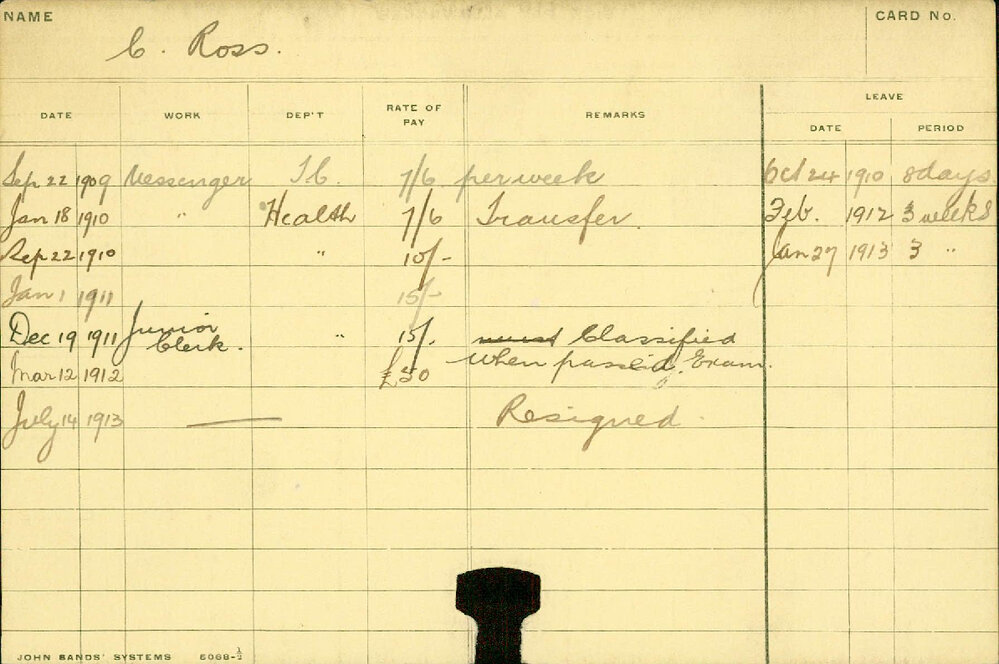 NAME
C. Ross.
CARD No.
DATE WORK DEP'T RATE OF PAY REMARKS LEAVE
DATE PERIOD
Sep 22 1909 Messenger T.C. 7/6 per week Oct 24 1910 8 days
Jan 18 1910 " Health 7/6 Transfer. Feb. 1912 3 weeks
Sep 22 1910 " 10/- Jan 27 1913 3 "
Jan 1 1911 15/-
Dec 19 1911 Junior Clerk. " 15/. Classified
when passed Exam.
Mar 12 1912 £50
July 14 1913 — Resigned.
JOHN SANDS' SYSTEMS 5068-½